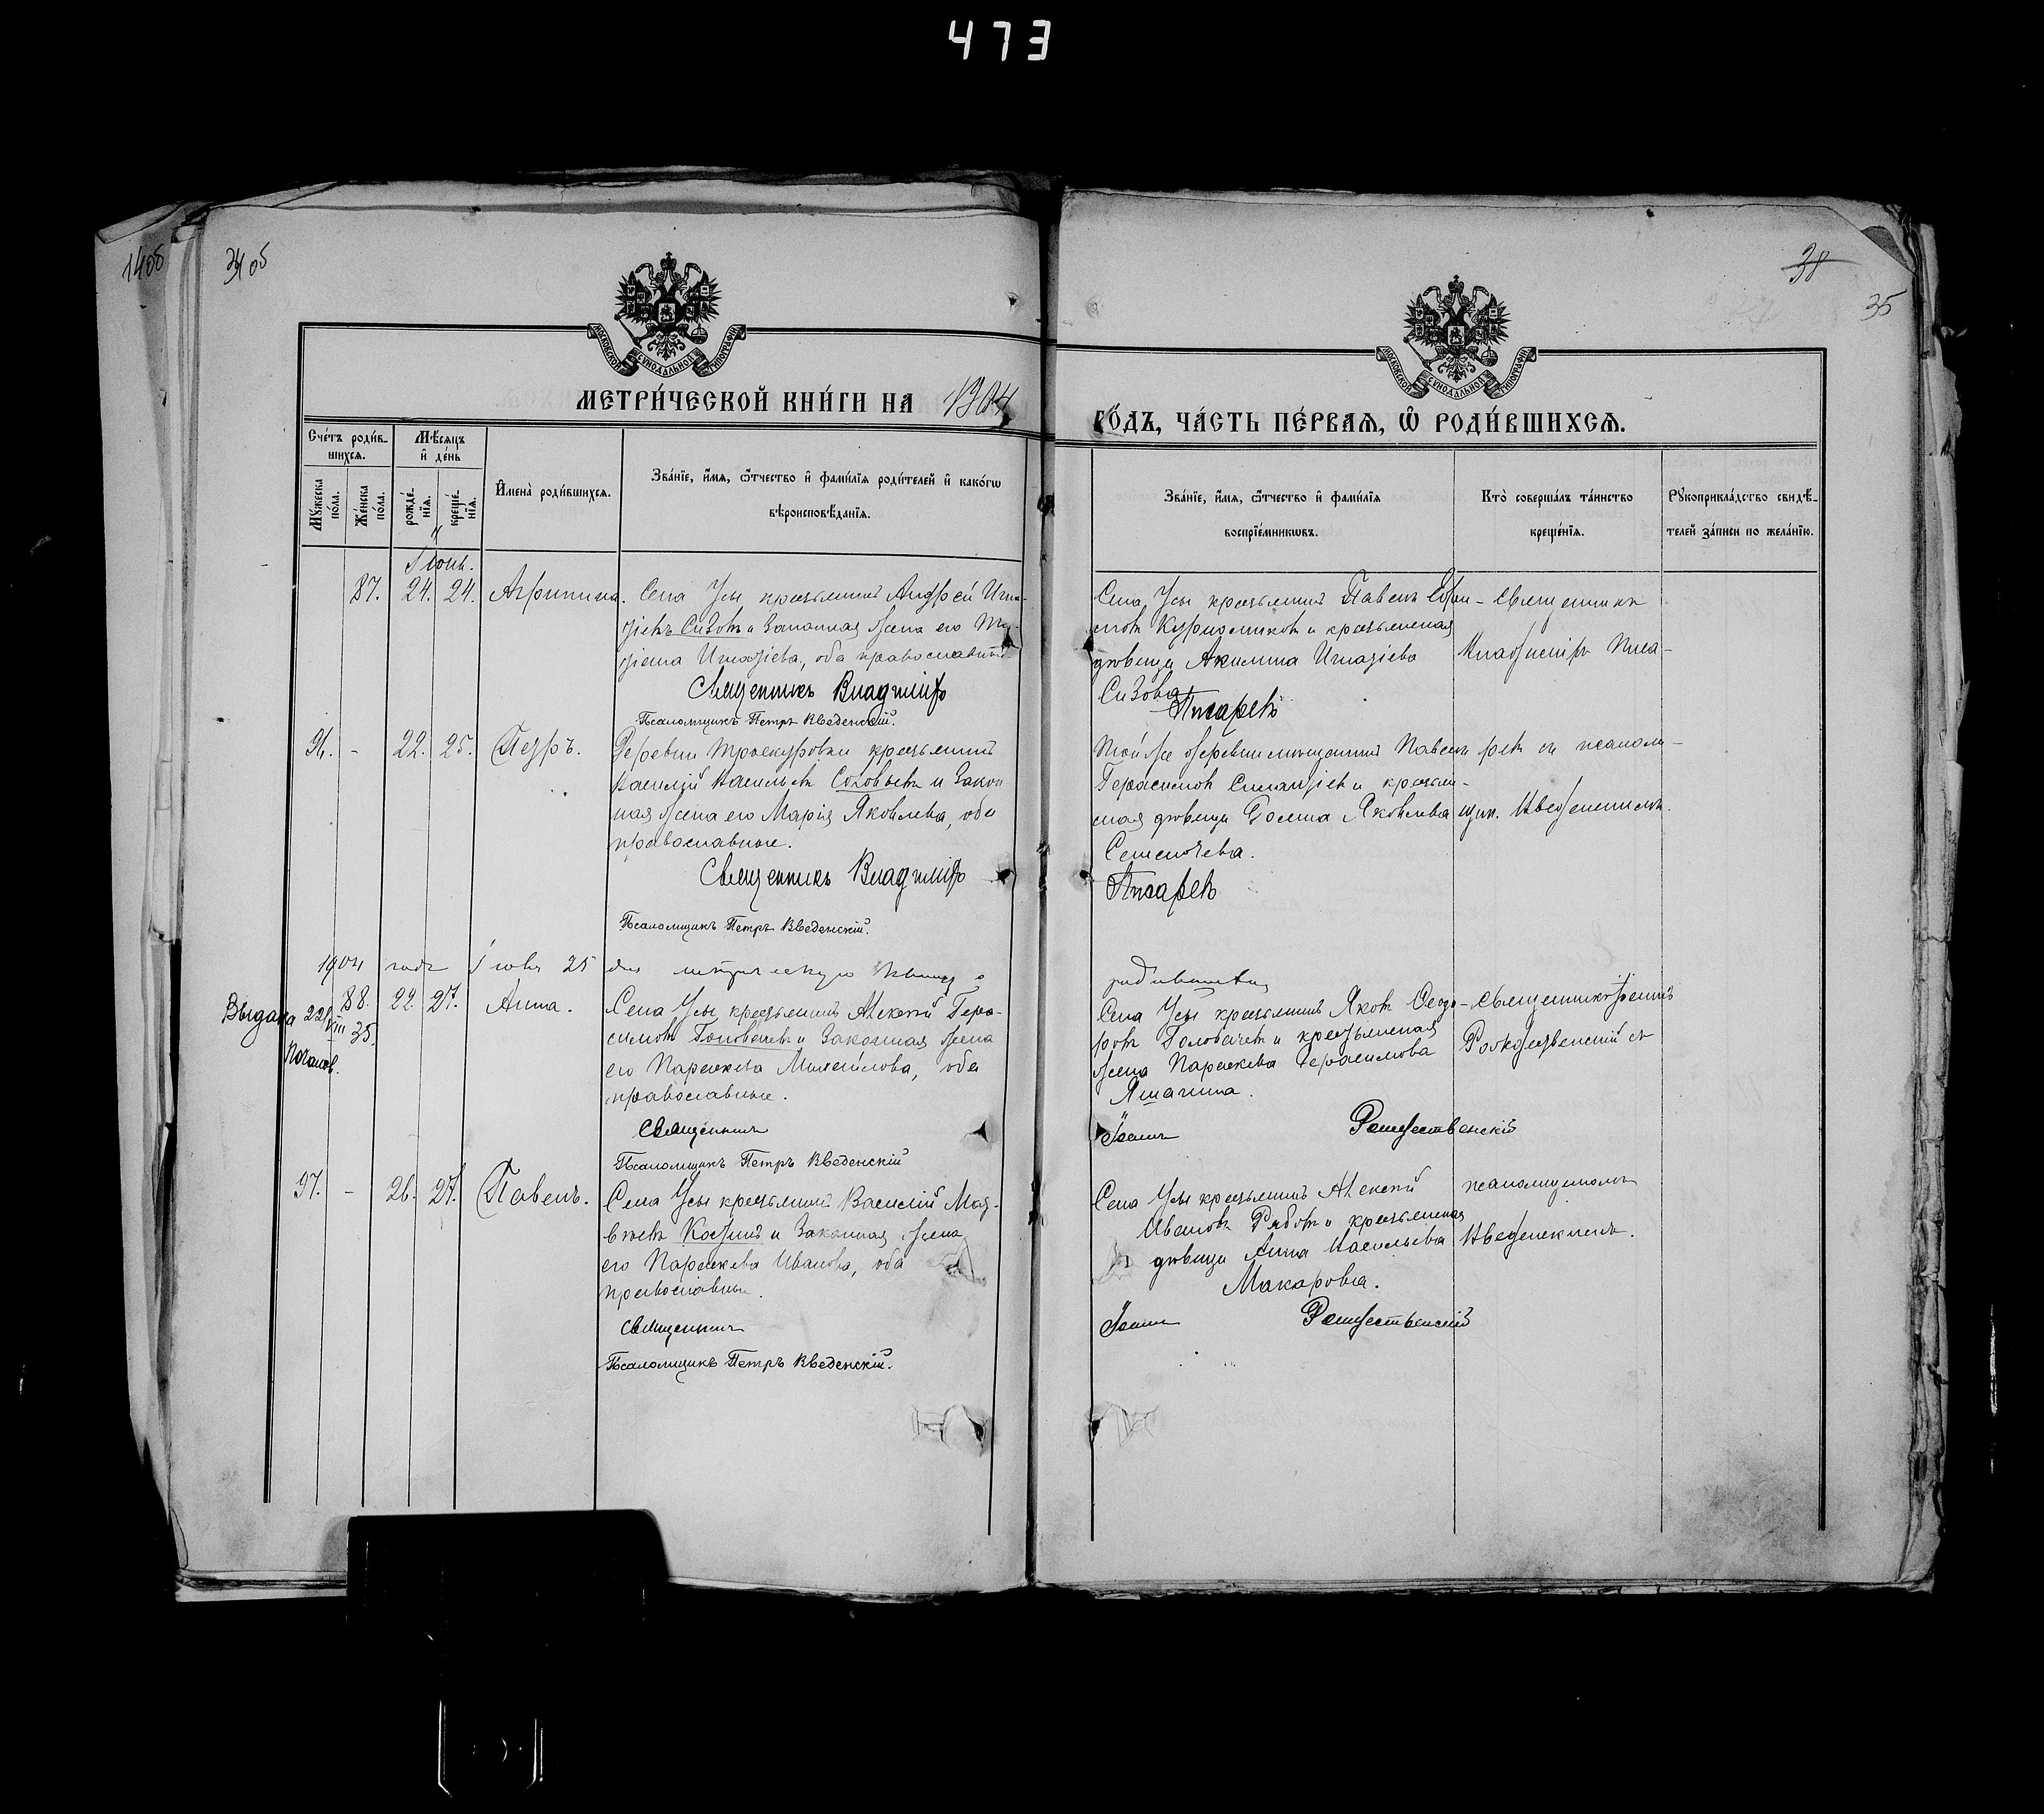 473
34 об
38
35
МОСКОВСКОЙ СУНОДАЛЬНОЙ ТИПОГРАФІИ
МОСКОВСКОЙ СУНОДАЛЬНОЙ ТИПОГРАФІИ
МЕТРИ́ЧЕСКОЙ КНИ́ГИ НА 1904
ГО́ДЪ, ЧА́СТЬ ПЕ́РВАЯ, Ѡ РОДИ́ВШИХСЯ.
Сче́тъ роди́в-
шихся.
Мѣ́сяцъ
и де́нь
Му́жеска по́ла.
Же́нска по́ла.
рожде́-
нїя.
креще́-
нїя.
И́мена̀ роди́вшихся.
Зва́нїе, и́мя, ѻ́тчество и фами́лїя роди́телей и како́гѡ
вѣроисповѣ́данїя.
Зва́нїе, и́мя, ѻ́тчество и фами́лїя
воспрїе́мникѡвъ.
Кто̀ соверша́лъ та́инство
креще́нїя.
Рꙋкоприкла́дство свидѣ́-
телей за́писи по жела́нїю.
Іюнь.
87. 24. 24. Агрипина. Села Усы крестьянинъ Андрей Игна-
тіевъ Сизовъ и законная жена его
Игнатіева, оба православные.
Священникъ Владиміръ
Псаломщикъ Петръ Введенскій.
Села Усы крестьянинъ Павелъ
и крестьянская
дѣвица Акилина Игнатіева
Сизова
Писаревъ
Священникъ
Владиміръ Писа-
96. - 22. 25. Петръ. Деревни крестьянинъ
Василій Васильевъ Соловьевъ и закон
ная жена его Марія Яковлева, оба
православные.
Священникъ Владиміръ
Псаломщикъ Петръ Введенскій.
Той же деревни мещанинъ Павелъ
Герасимовъ и крестьян-
ская дѣвица Яковлева
Писаревъ
ревъ съ псалом-
щик. Введенскимъ.
1904 года Іюня 25 дня метрическую книгу о
родившихся
Выдана 22/VIII 35.
88. 22. 27. Анна. Села Усы крестьянинъ Алексѣй Гера-
симовъ Головачевъ и законная жена
его Параскева Михайлова, оба
православные.
Священникъ
Псаломщикъ Петръ Введенскій
Села Усы крестьянинъ Яковъ Ѳеодо-
ровъ Головачевъ и крестьянская
жена Параскева Герасимова
Яшагина.
Іоаннъ Рождественскій
Священникъ Іоаннъ
Рождественскій съ
97. - 26. 27. Павелъ. Села Усы крестьянинъ Василій Мат-
вѣевъ и законная жена
его Параскева Иванова, оба
православны.
Священникъ
Псаломщикъ Петръ Введенскій.
Села Усы крестьянинъ Алексѣй
Ивановъ Рябовъ и крестьянская
дѣвица Анна Васильева
Макарова.
Іоаннъ Рождественскій
псаломщикомъ
Введенскимъ.